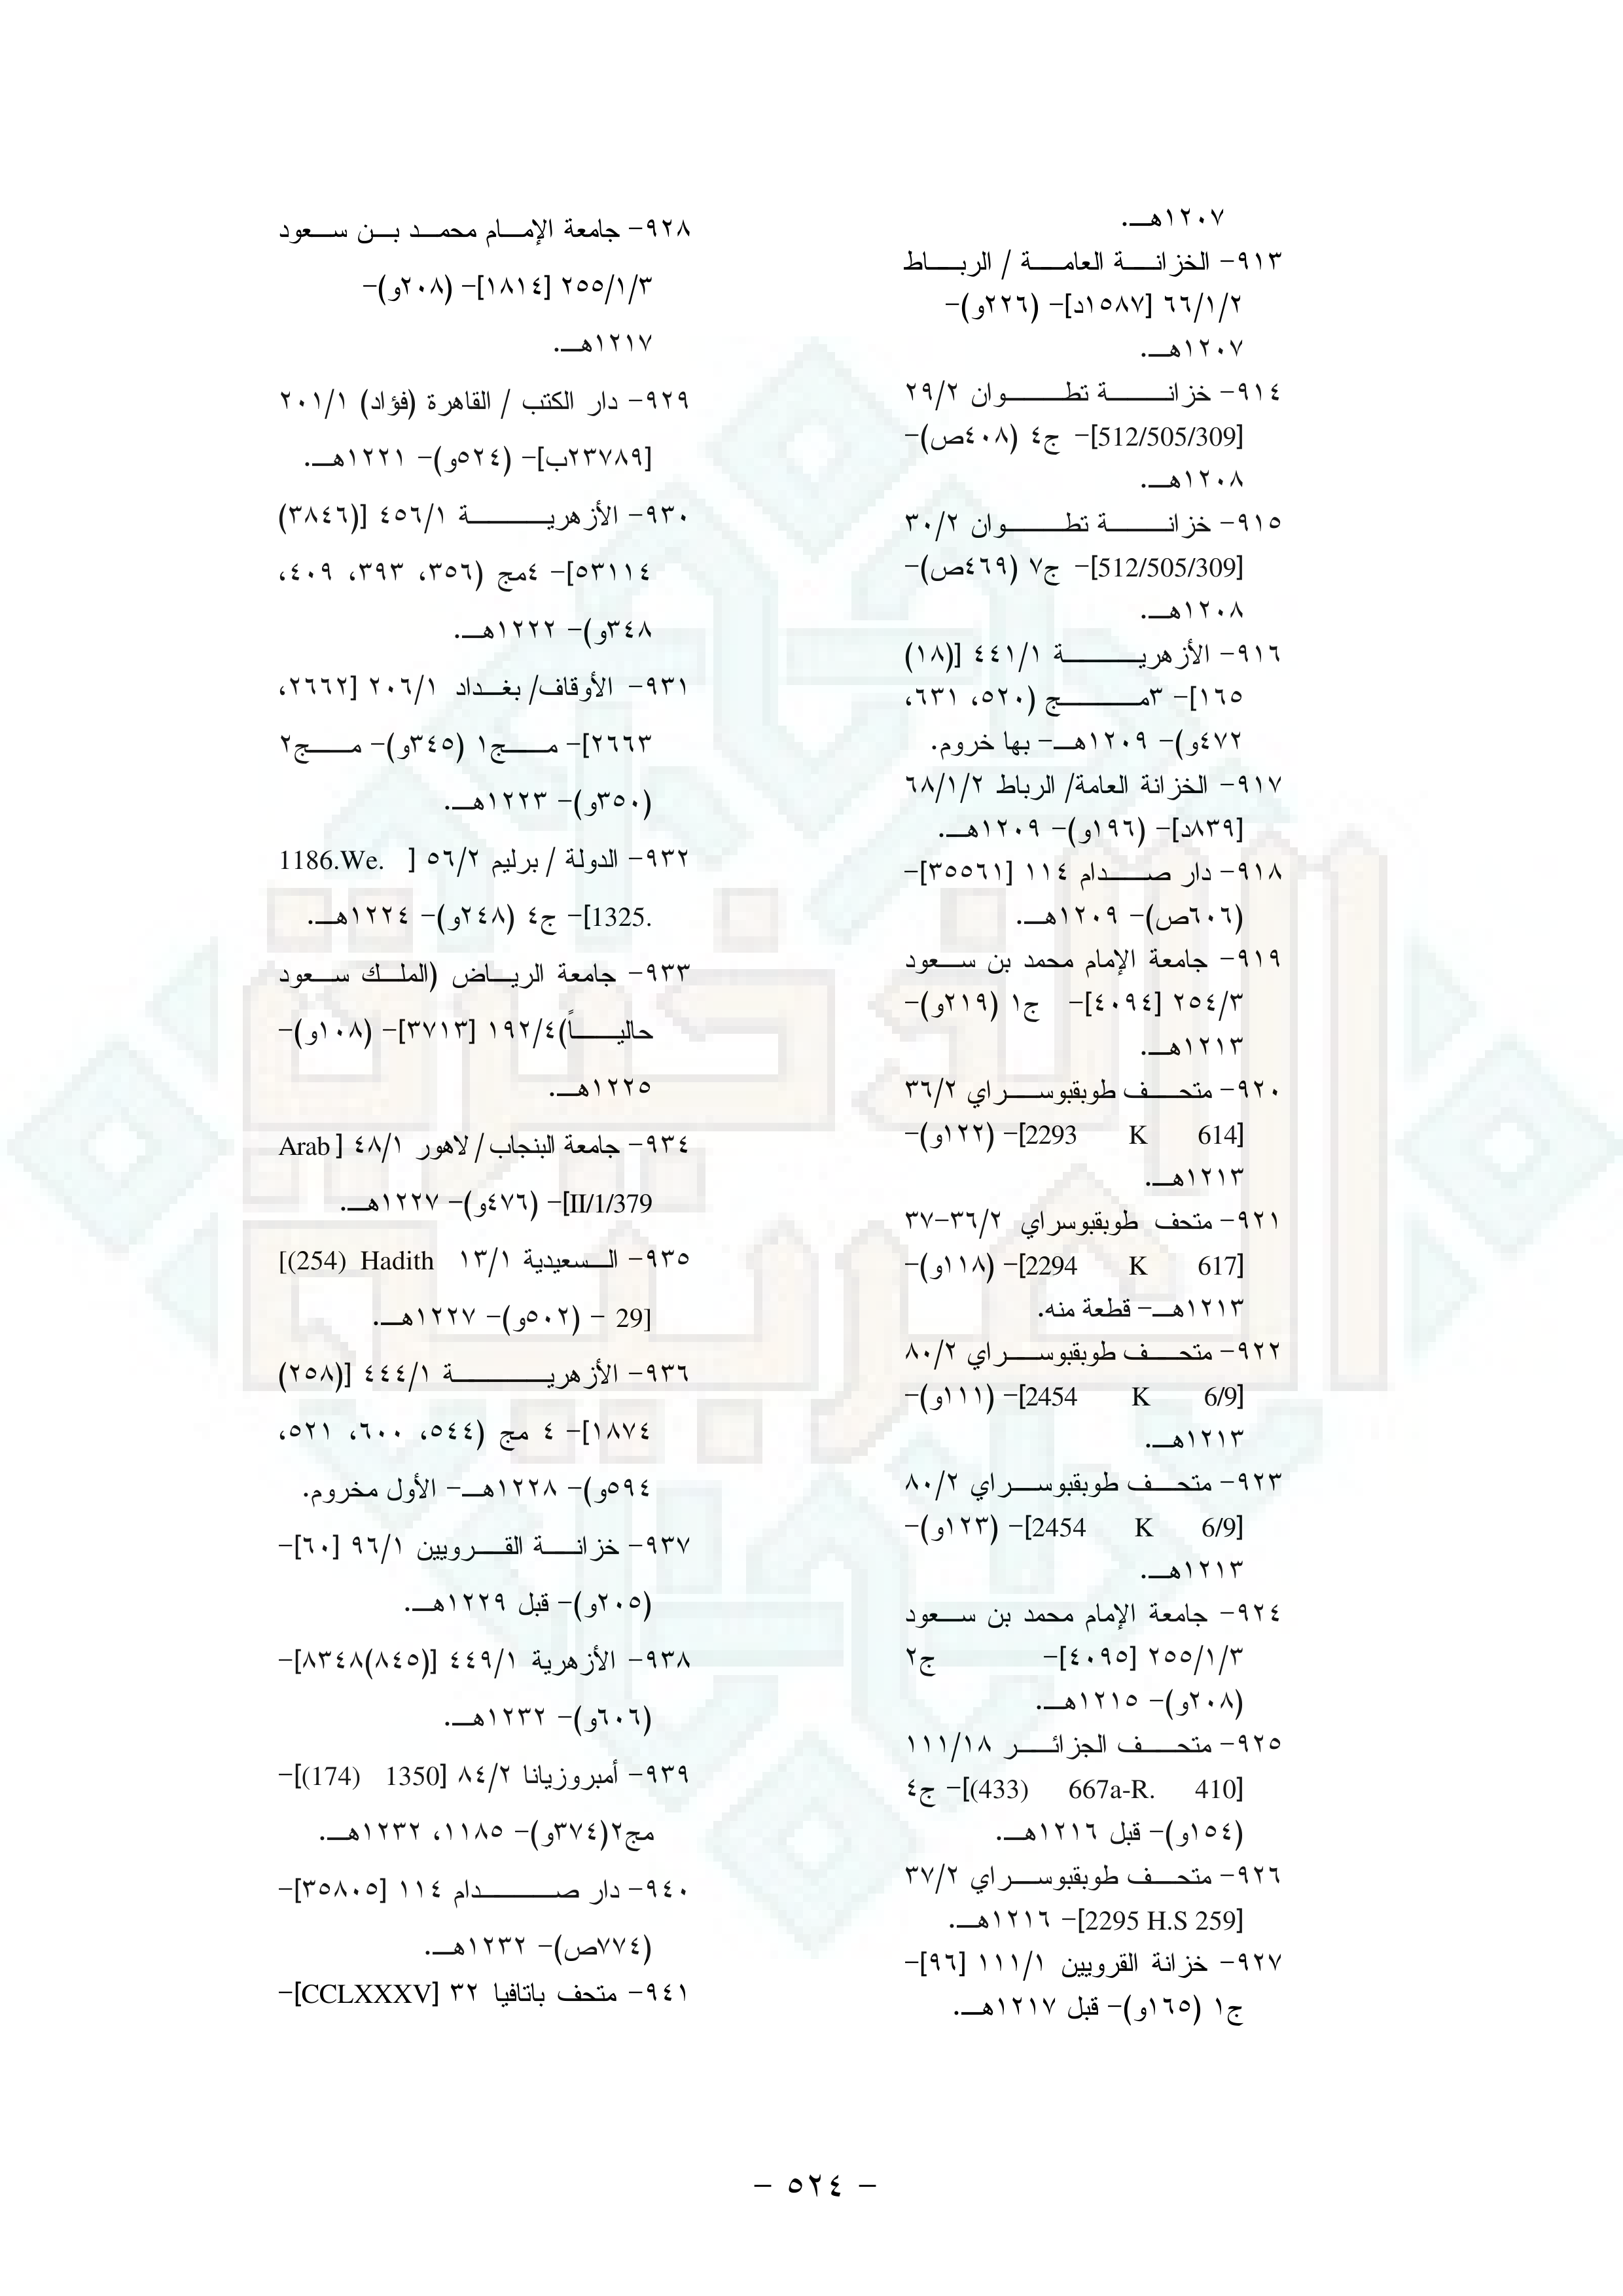 ١٢٠٧هـ.
٩١٣- الخزانة العامة / الرباط
٦٦/١/٢ [١٥٨٧د]- (٢٢٦و)-
١٢٠٧هـ.
٩١٤- خزانة تطوان ٢٩/٢
[512/505/309]- ج٤ (٤٠٨ص)-
١٢٠٨هـ.
٩١٥- خزانة تطوان ٣٠/٢
[512/505/309]- ج٧ (٤٦٩ص)-
١٢٠٨هـ.
٩١٦- الأزهرية ٤٤١/١ [(١٨)
١٦٥]- ٣مج (٥٢٠، ٦٣١،
٤٧٢و)- ١٢٠٩هـ- بها خروم.
٩١٧- الخزانة العامة/ الرباط ٦٨/١/٢
[٨٣٩د]- (١٩٦و)- ١٢٠٩هـ.
٩١٨- دار صدام ١١٤ [٣٥٥٦١]-
(٦٠٦ص)- ١٢٠٩هـ.
٩١٩- جامعة الإمام محمد بن سعود
٢٥٤/٣ [٤٠٩٤]- ج١ (٢١٩و)-
١٢١٣هـ.
٩٢٠- متحف طوبقبوسراي ٣٦/٢
[2293 K 614]- (١٢٢و)-
١٢١٣هـ.
٩٢١- متحف طوبقبوسراي ٣٦/٢-٣٧
[2294 K 617]- (١١٨و)-
١٢١٣هـ- قطعة منه.
٩٢٢- متحف طوبقبوسراي ٨٠/٢
[2454 K 6/9]- (١١١و)-
١٢١٣هـ.
٩٢٣- متحف طوبقبوسراي ٨٠/٢
[2454 K 6/9]- (١٢٣و)-
١٢١٣هـ.
٩٢٤- جامعة الإمام محمد بن سعود
٢٥٥/١/٣ [٤٠٩٥]- ج٢
(٢٠٨و)- ١٢١٥هـ.
٩٢٥- متحف الجزائر ١١١/١٨
[(433) 667a-R. 410]- ج٤
(١٥٤و)- قبل ١٢١٦هـ.
٩٢٦- متحف طوبقبوسراي ٣٧/٢
[2295 H.S 259]- ١٢١٦هـ.
٩٢٧- خزانة القرويين ١١١/١ [٩٦]-
ج١ (١٦٥و)- قبل ١٢١٧هـ.
٩٢٨- جامعة الإمام محمد بن سعود
٢٥٥/١/٣ [١٨١٤]- (٢٠٨و)-
١٢١٧هـ.
٩٢٩- دار الكتب / القاهرة (فؤاد) ٢٠١/١
[٢٣٧٨٩ب]- (٥٢٤و)- ١٢٢١هـ.
٩٣٠- الأزهرية ٤٥٦/١ [(٣٨٤٦)
٥٣١١٤]- ٤مج (٣٥٦، ٣٩٣، ٤٠٩،
٣٤٨و)- ١٢٢٢هـ.
٩٣١- الأوقاف/ بغداد ٢٠٦/١ [٢٦٦٢،
٢٦٦٣]- مج١ (٣٤٥و)- مج٢
(٣٥٠و)- ١٢٢٣هـ.
٩٣٢- الدولة / برليم ٥٦/٢ [ 1186.We.
1325.]- ج٤ (٢٤٨و)- ١٢٢٤هـ.
٩٣٣- جامعة الرياض (الملك سعود
حالياً)١٩٢/٤ [٣٧١٣]- (١٠٨و)-
١٢٢٥هـ.
٩٣٤- جامعة البنجاب/ لاهور ٤٨/١ [ Arab
II/1/379]- (٤٧٦و)- ١٢٢٧هـ.
٩٣٥- السعيدية ١٣/١ [(254) Hadith
29] - (٥٠٢و)- ١٢٢٧هـ.
٩٣٦- الأزهرية ٤٤٤/١ [(٢٥٨)
١٨٧٤]- ٤ مج (٥٤٤، ٦٠٠، ٥٢١،
٥٩٤و)- ١٢٢٨هـ- الأول مخروم.
٩٣٧- خزانة القرويين ٩٦/١ [٦٠]-
(٢٠٥و)- قبل ١٢٢٩هـ.
٩٣٨- الأزهرية ٤٤٩/١ [(٨٤٥)٨٣٤٨]-
(٦٠٦و)- ١٢٣٢هـ.
٩٣٩- أمبروزيانا ٨٤/٢ [1350 (174)]-
مج٢(٣٧٤و)- ١١٨٥، ١٢٣٢هـ.
٩٤٠- دار صدام ١١٤ [٣٥٨٠٥]-
(٧٧٤ص)- ١٢٣٢هـ.
٩٤١- متحف باتافيا ٣٢ [CCLXXXV]-
- ٥٢٤ -